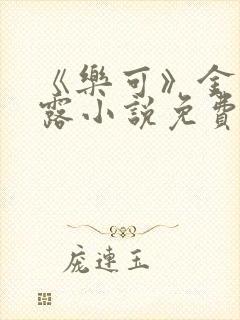 《樂可》金
露小說免費
庞連玉